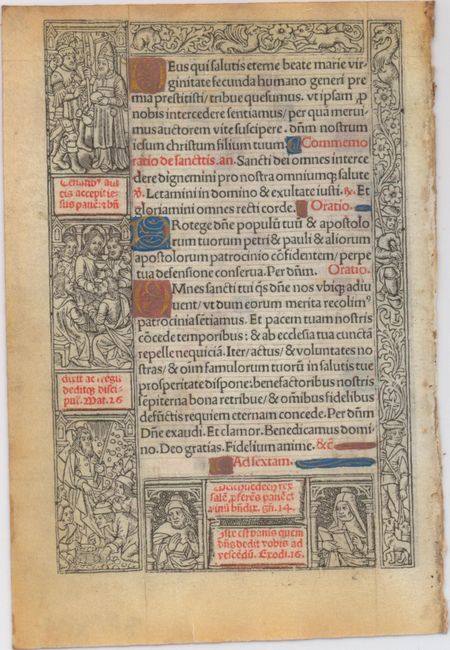 Deus qui salutis eterne beate marie vir
ginitate fecunda humano generi pre
mia prestitisti/ tribue quesumus. vt ipsam ꝓ
nobis intercedere sentiamus/ per quā merui-
mus auctorem vite suscipere. dn̄m nostrum
iesum christum filium tuum. Commemo
ratio de sanctis. an. Sancti dei omnes interce
dere dignemini pro nostra omniumq̄ salute
℣. Letamini in domino & exultate iusti. ℟. Et
gloriamini omnes recti corde. Oratio.
Protege dn̄e populū tuū & apostolo
rum tuorum petri & pauli & aliorum
apostolorum patrocinio cōfidentem/ perpe
tua defensione conserua. Per dn̄m. Oratio.
Omnes sancti tui q̄s dn̄e nos vbiq̄ adiu
uent/ vt dum eorum merita recolimꝰ
patrocinia sētiamus. Et pacem tuam nostris
cōcede temporibus: & ab ecclesia tua cunctā
repelle nequiciā. Iter/ actus/ & voluntates no
stras/ & oīm famulorum tuorū in salutis tue
prosperitate dispone: benefactoribus nostris
sēpiterna bona retribue/ & om̄ibus fidelibus
defūctis requiem eternam concede. Per dn̄m
Dn̄e exaudi. Et clamor. Benedicamus domi
no. Deo gratias. Fidelium anime. &c̄
Ad sextam.
Cenātibꝰ au
tē accepit ie-
sus panē: & bn̄
dixit ac fregit
deditq̄ disci-
pul̄. Mat. 26
Melchisedech rex
salē, ꝓferēs panē et
vinū bn̄dix. gn̄. 14.
Iste est panis quem
dn̄s dedit vobis ad
vescēdū. Exodi. 16.